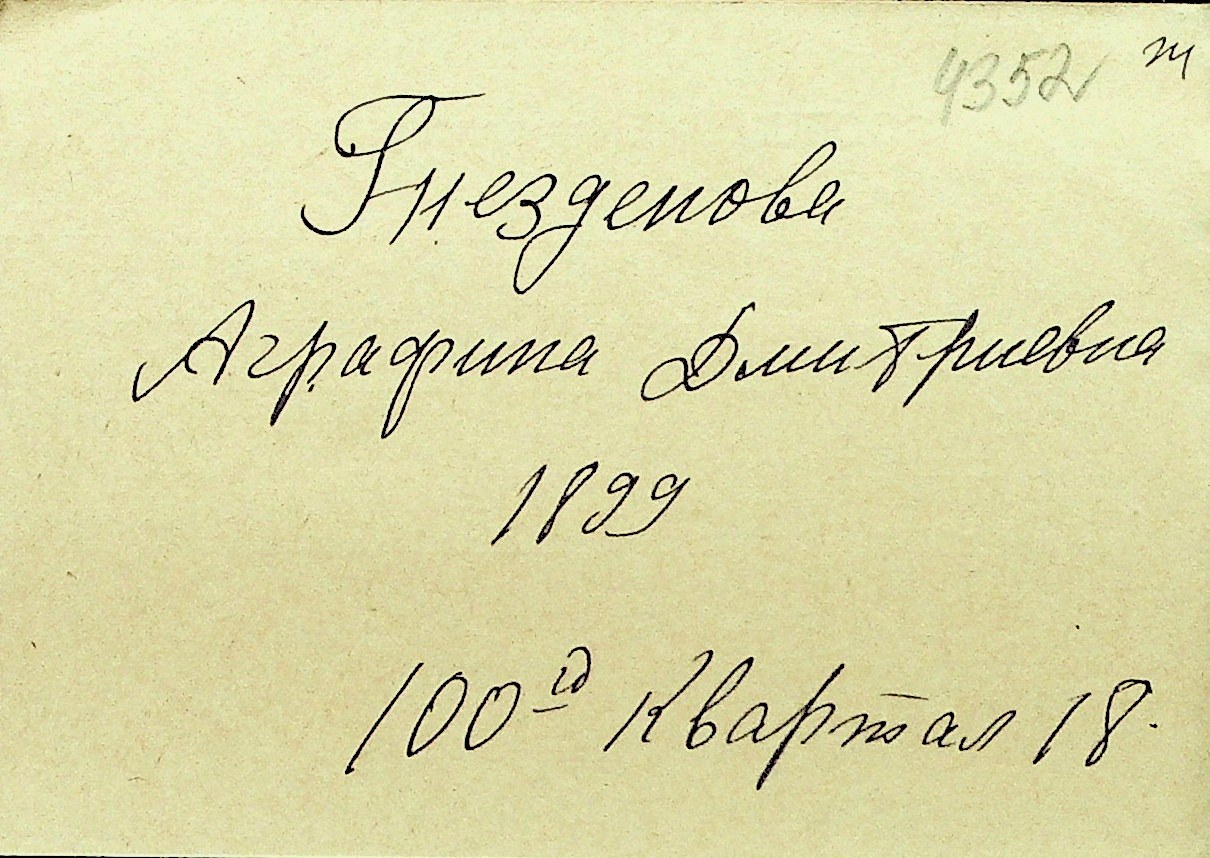 4352
Гнезденова
Аграфина Дмитриевна
1899
100й Квартал 18.